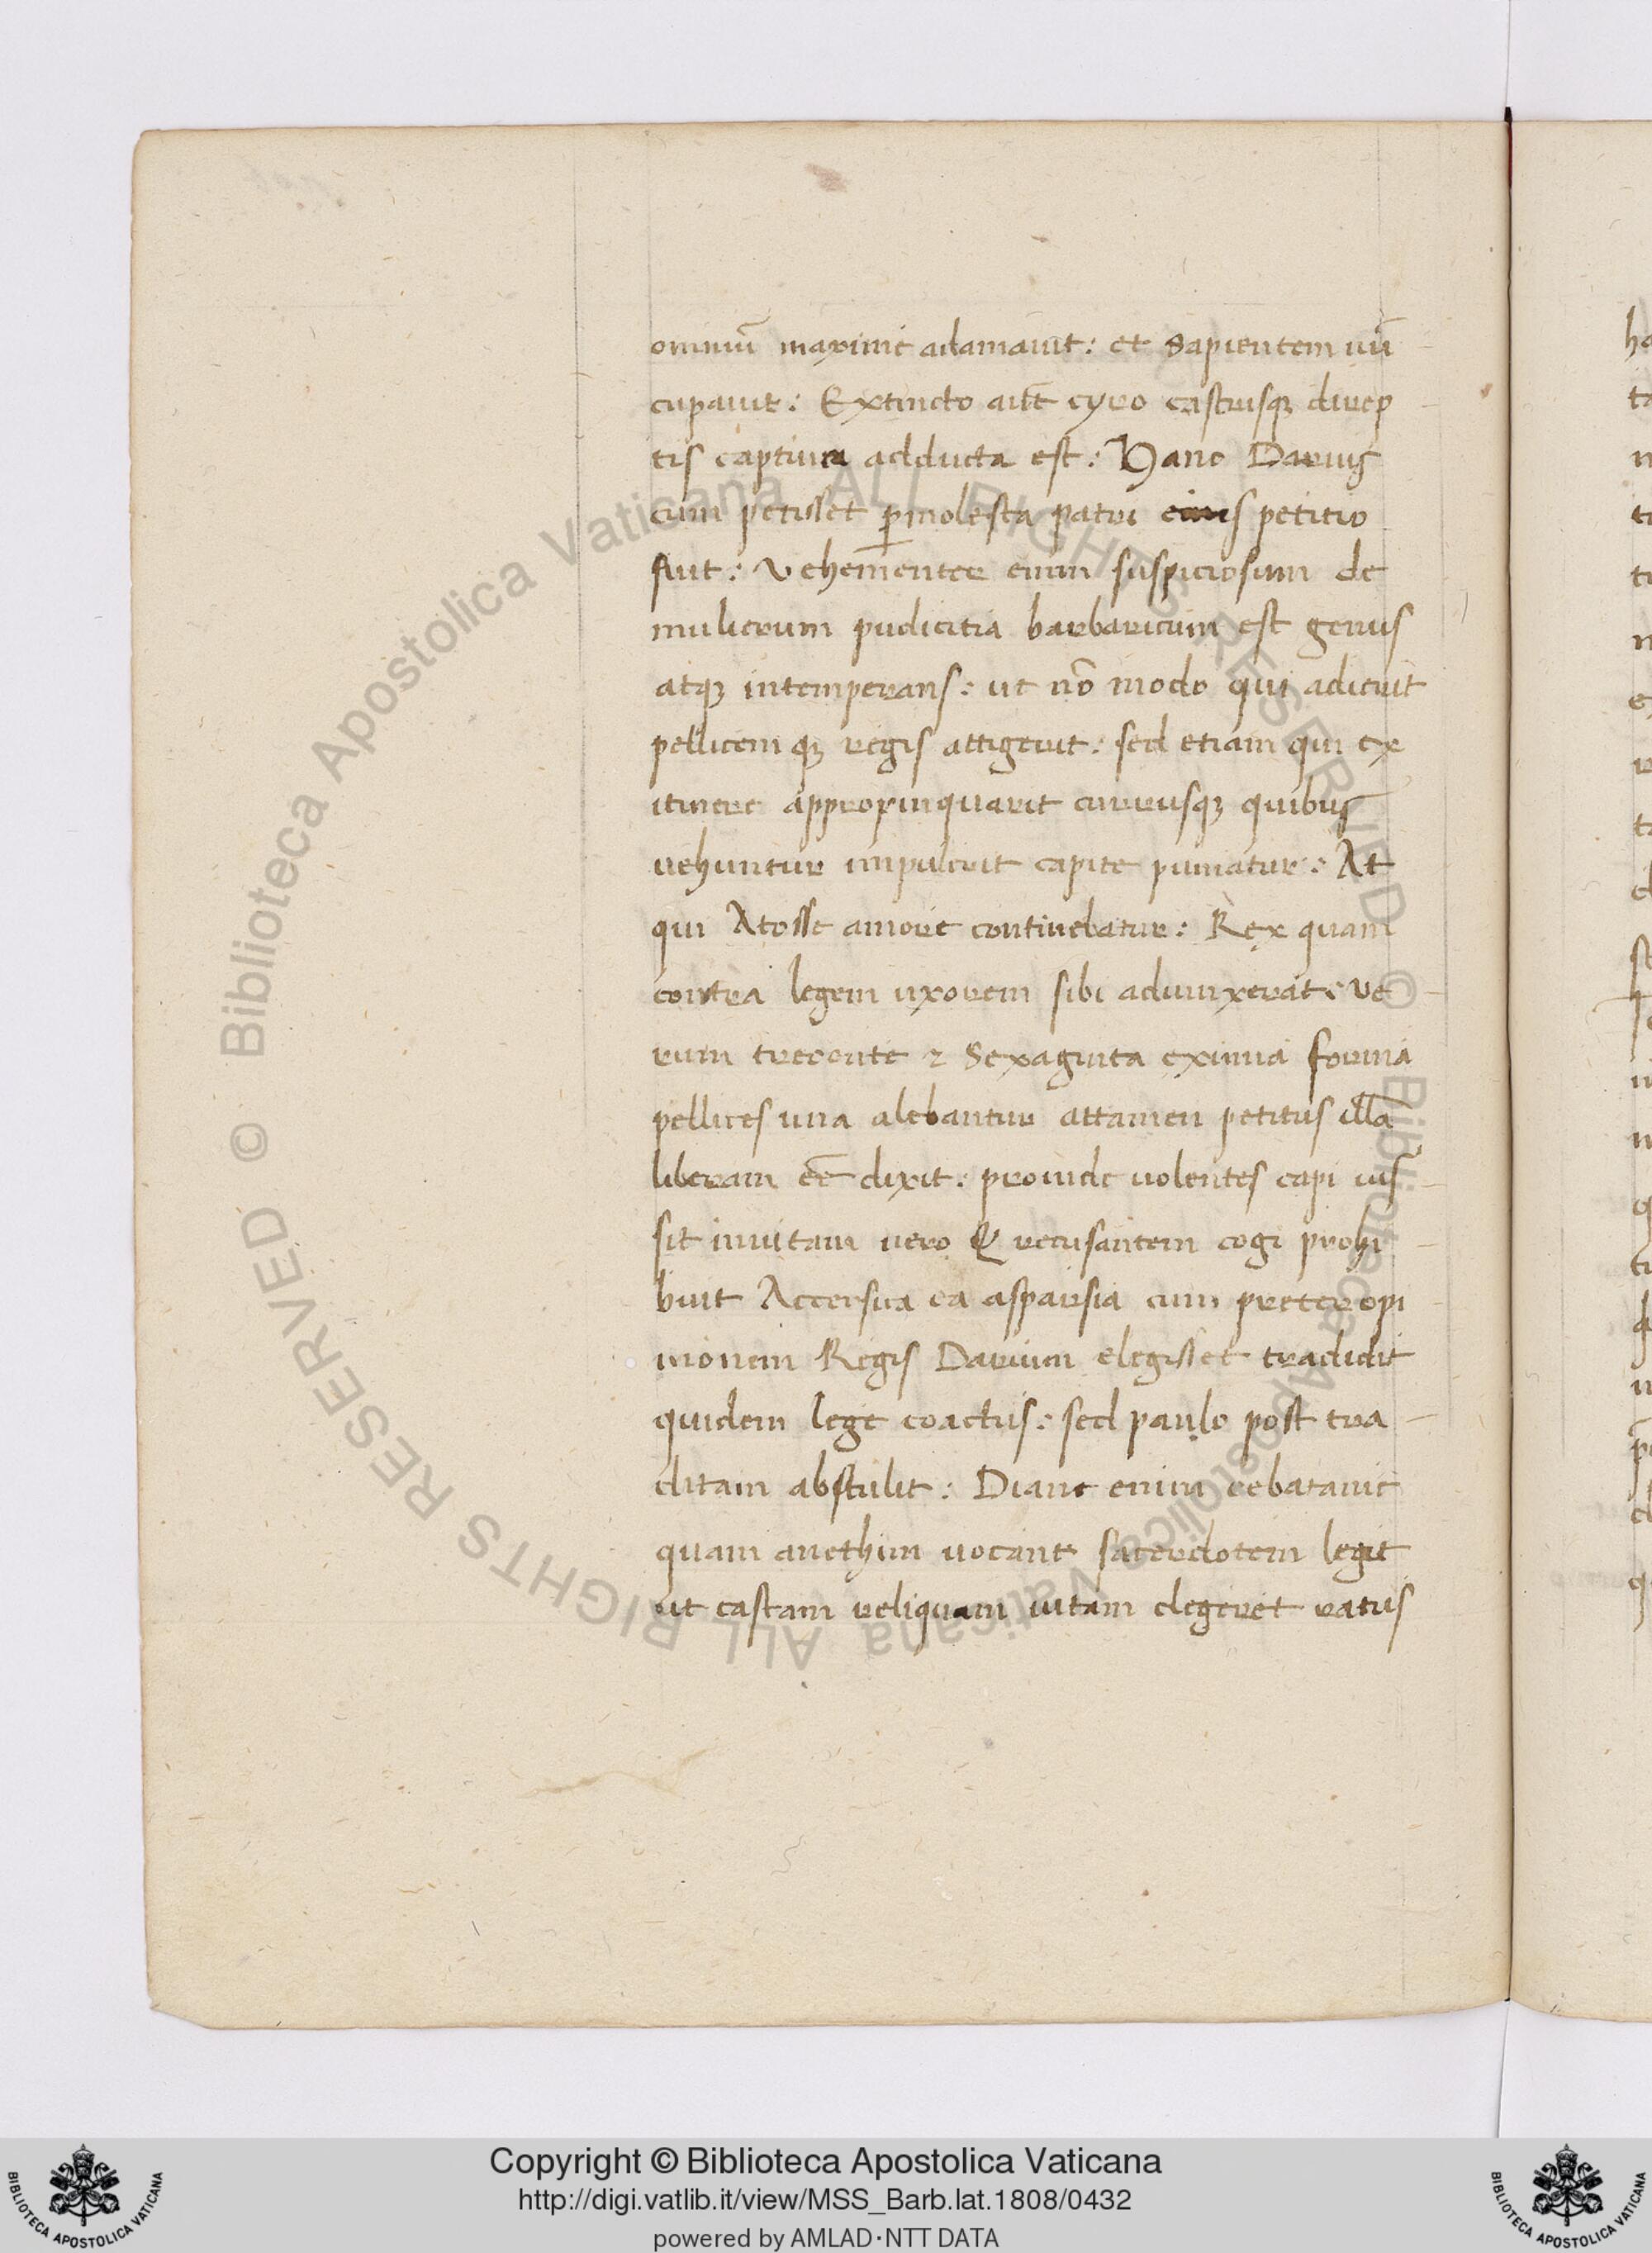 omniū maxime adamavit: et sapientem nū
cupavit: Extincto aūt cyro castrisqȝ direp
tis captiva adducta est: Hanc Darius
cum petisset ꝑmolesta patri eius petitio
fuit: vehementer enim suspiciosum de
mulierum pudicitia barbaricum est genus
atqȝ intemperans: ut nō modo qui adierit
pellicem qȝ regis attigerit: sed etiam qui ex
itinere appropinquarit curribusqȝ quibus
vehuntur impulerit capite puniatur: At
qui Atosse amore continebatur: Rex quam
contra legem uxorem sibi adiunxerat: ve
rum trecente ⁊ sexaginta eximia forma
pellices una alebantur attamen petitus illā
liberam eē dixit: proinde volentes capi ius
sit invitam vero & recusantem cogi prohi
buit Accersita ea asparsia cum preter opi
nionem Regis Darium elegisset tradidit
quidem lege coactus: sed paulo post tra
ditam abstulit: Diane enim ecbatanie
quam anethim vocant sacerdotem legit
ut castam reliquam vitam degeret ratus
Copyright © Biblioteca Apostolica Vaticana
http://digi.vatlib.it/view/MSS_Barb.lat.1808/0432
powered by AMLAD·NTT DATA